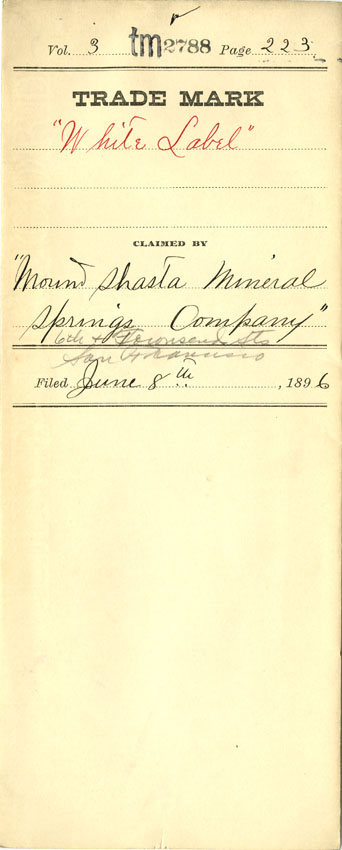 Vol. 3 tm2788 Page 223
TRADE MARK
"White Label"
CLAIMED BY
"Mount Shasta Mineral
Springs Company"
6th & Townsend Sts
San Francisco
Filed June 8th, 1896